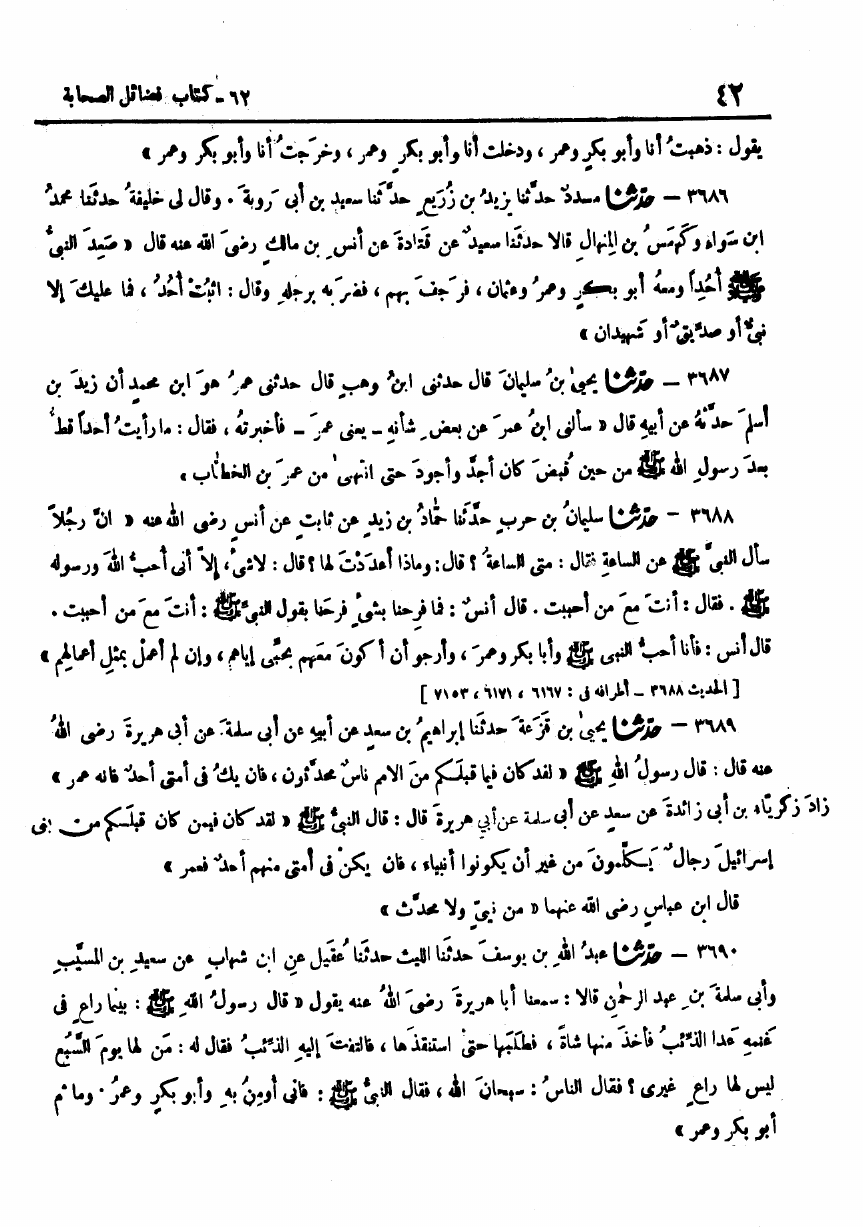 ٤٢ ٦٢ - كتاب فضائل الصحابة
يقول : ذهبتُ أنا وأبو بكرٍ وعمر ، ودخلت أنا وأبو بكرٍ وعمر ، وخرجتُ أنا وأبو بكر وعمر »
٣٦٨٦ — حدّثنا مسددٌ حدَّثنا يزيدُ بن زُرَيعٍ حدَّثنا سعيد بن أبى روبةَ . وقال لى خليفةُ حدثنا محمدُ
ابن سَواء وكَهمَسُ بن المِنهالِ قالا حدثَنا سعيدٌ عن قتادةَ عن أنسِ بن مالكٍ رضىَ الله عنه قال « صَعِدَ النبىُّ
ﷺ أُحُداً ومعهُ أبو بكرٍ وعمرُ وعثمان ، فرجفَ بهم ، فضربَه برجلهِ وقال : اثبُتْ أُحُدُ ، فما عليكَ إلا
نبىٌّ أو صدِّيقٌ أو شهيدان »
٣٦٨٧ — حدّثنا يحيىٰ بنُ سليمانَ قال حدثنى ابنُ وهبٍ قال حدثنى عمرُ هوَ ابن محمدٍ أن زيدَ بن
أسلمَ حدَّثهُ عن أبيهِ قال « سألنى ابنُ عمرَ عن بعضِ شأنهِ ـ يعنى عمرَ ـ فأخبرتهُ ، فقال : ما رأيتُ أحداً قطُّ
بعدَ رسولِ الله ﷺ من حين قُبضَ كان أجدَّ وأجودَ حتى انتهىٰ من عمرَ بن الخطاب »
٣٦٨٨ — حدّثنا سليمانُ بن حربٍ حدَّثنا حمّادُ بن زيدٍ عن ثابتٍ عن أنسٍ رضى الله عنه « انَّ رجُلاً
سأل النبىَّ ﷺ عن الساعةِ فقال : متى الساعةُ ؟ قال : وماذا أعدَدْتَ لها ؟ قال : لا شىْء ، إلاّ أنى أُحبُّ اللهَ ورسوله
ﷺ . فقال : أنتَ معَ من أحببت . قال أنسٌ : فما فرِحنا بشىْءٍ فرحَنا بقول النبىِّ ﷺ : أنتَ معَ من أحببت .
قال أنس : فأنا أحبُّ النبى ﷺ وأبا بكر وعمرَ ، وأرجو أن أكونَ معَهم بحبِّى إياهم ، وإن لم أعملْ بمثلِ أعمالِهم »
[ الحديث ٣٦٨٨ – أطرافه فى : ٦١٦٧ ، ٦١٧١ ، ٧١٥٣ ]
٣٦٨٩ — حدّثنا يحيىٰ بن قَزَعةَ حدثنَا إبراهيمُ بن سعدٍ عن أبيهِ عن أبى سلمةَ عن أبى هريرةَ رضى اللهُ
عنه قال : قال رسولُ اللهِ ﷺ « لقد كان فيما قبلَكم منَ الامم ناسٌ محدَّثون ، فان يكُ فى أمتى أحدٌ فانه عمر »
زادَ زكريّاء بن أبى زائدةَ عن سعدٍ عن أبى سلمة عن أبي هريرةَ قال : قال النبىُّ ﷺ « لقد كان فيمن كان قبلَكم من بنى
إسرائيلَ رجالٌ يُكلَّمونَ من غير أن يكونوا أنبياء ، فان يكنْ فى أمتى منهم أحدٌ فعمر »
قال ابن عباسٍ رضى الله عنهما « من نبىٍّ ولا محدَّث »
٣٦٩٠ — حدّثنا عبدُ اللهِ بن يوسفَ حدثنَا الليث حدثنَا عُقَيل عنِ ابن شهابٍ عن سعيدِ بن المسيَّبِ
وأبى سلمةَ بنِ عبد الرحمٰنِ قالا : سمعنا أبا هريرةَ رضىَ اللهُ عنه يقول « قال رسولُ اللهِ ﷺ : بينما راعٍ فى
غنمهِ عَدا الذئبُ فأخذَ منها شاةً ، فطلَبَها حتىٰ استنقذَها ، فالتفتَ إليهِ الذئبُ فقال له : مَن لها يومَ السَّبُع
ليس لها راعٍ غيرى ؟ فقال الناسُ : سبحانَ الله ، فقال النبىُّ ﷺ : فانى أومِنُ بهِ وأبو بكرٍ وعمرُ . وما ثم
أبو بكر وعمر »